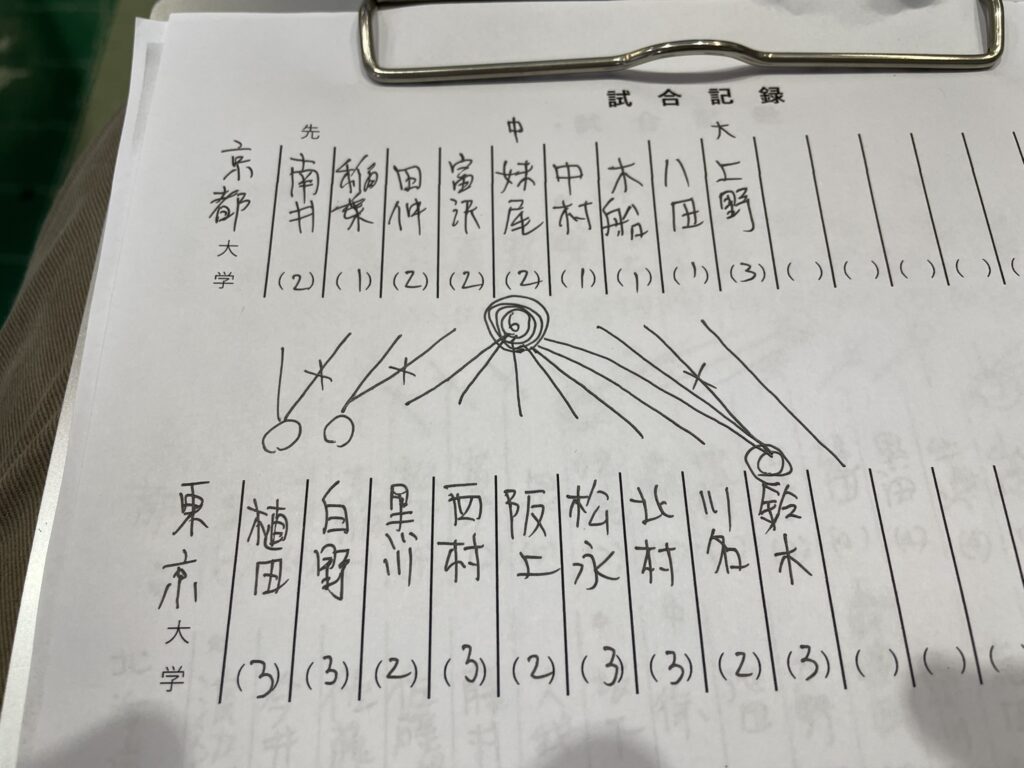 試合記録
先 中 大
京都大学 南井 稲葉 田仲 富沢 妹尾 中村 木船 八田 上野
(2) (1) (2) (2) (2) (1) (1) (1) (3) ( ) ( ) ( ) ( ) (
6
東京大学 植田 白野 黒川 西村 阪上 松永 北村 川名 鈴木
(3) (3) (2) (3) (2) (3) (3) (2) (3) ( ) ( ) (